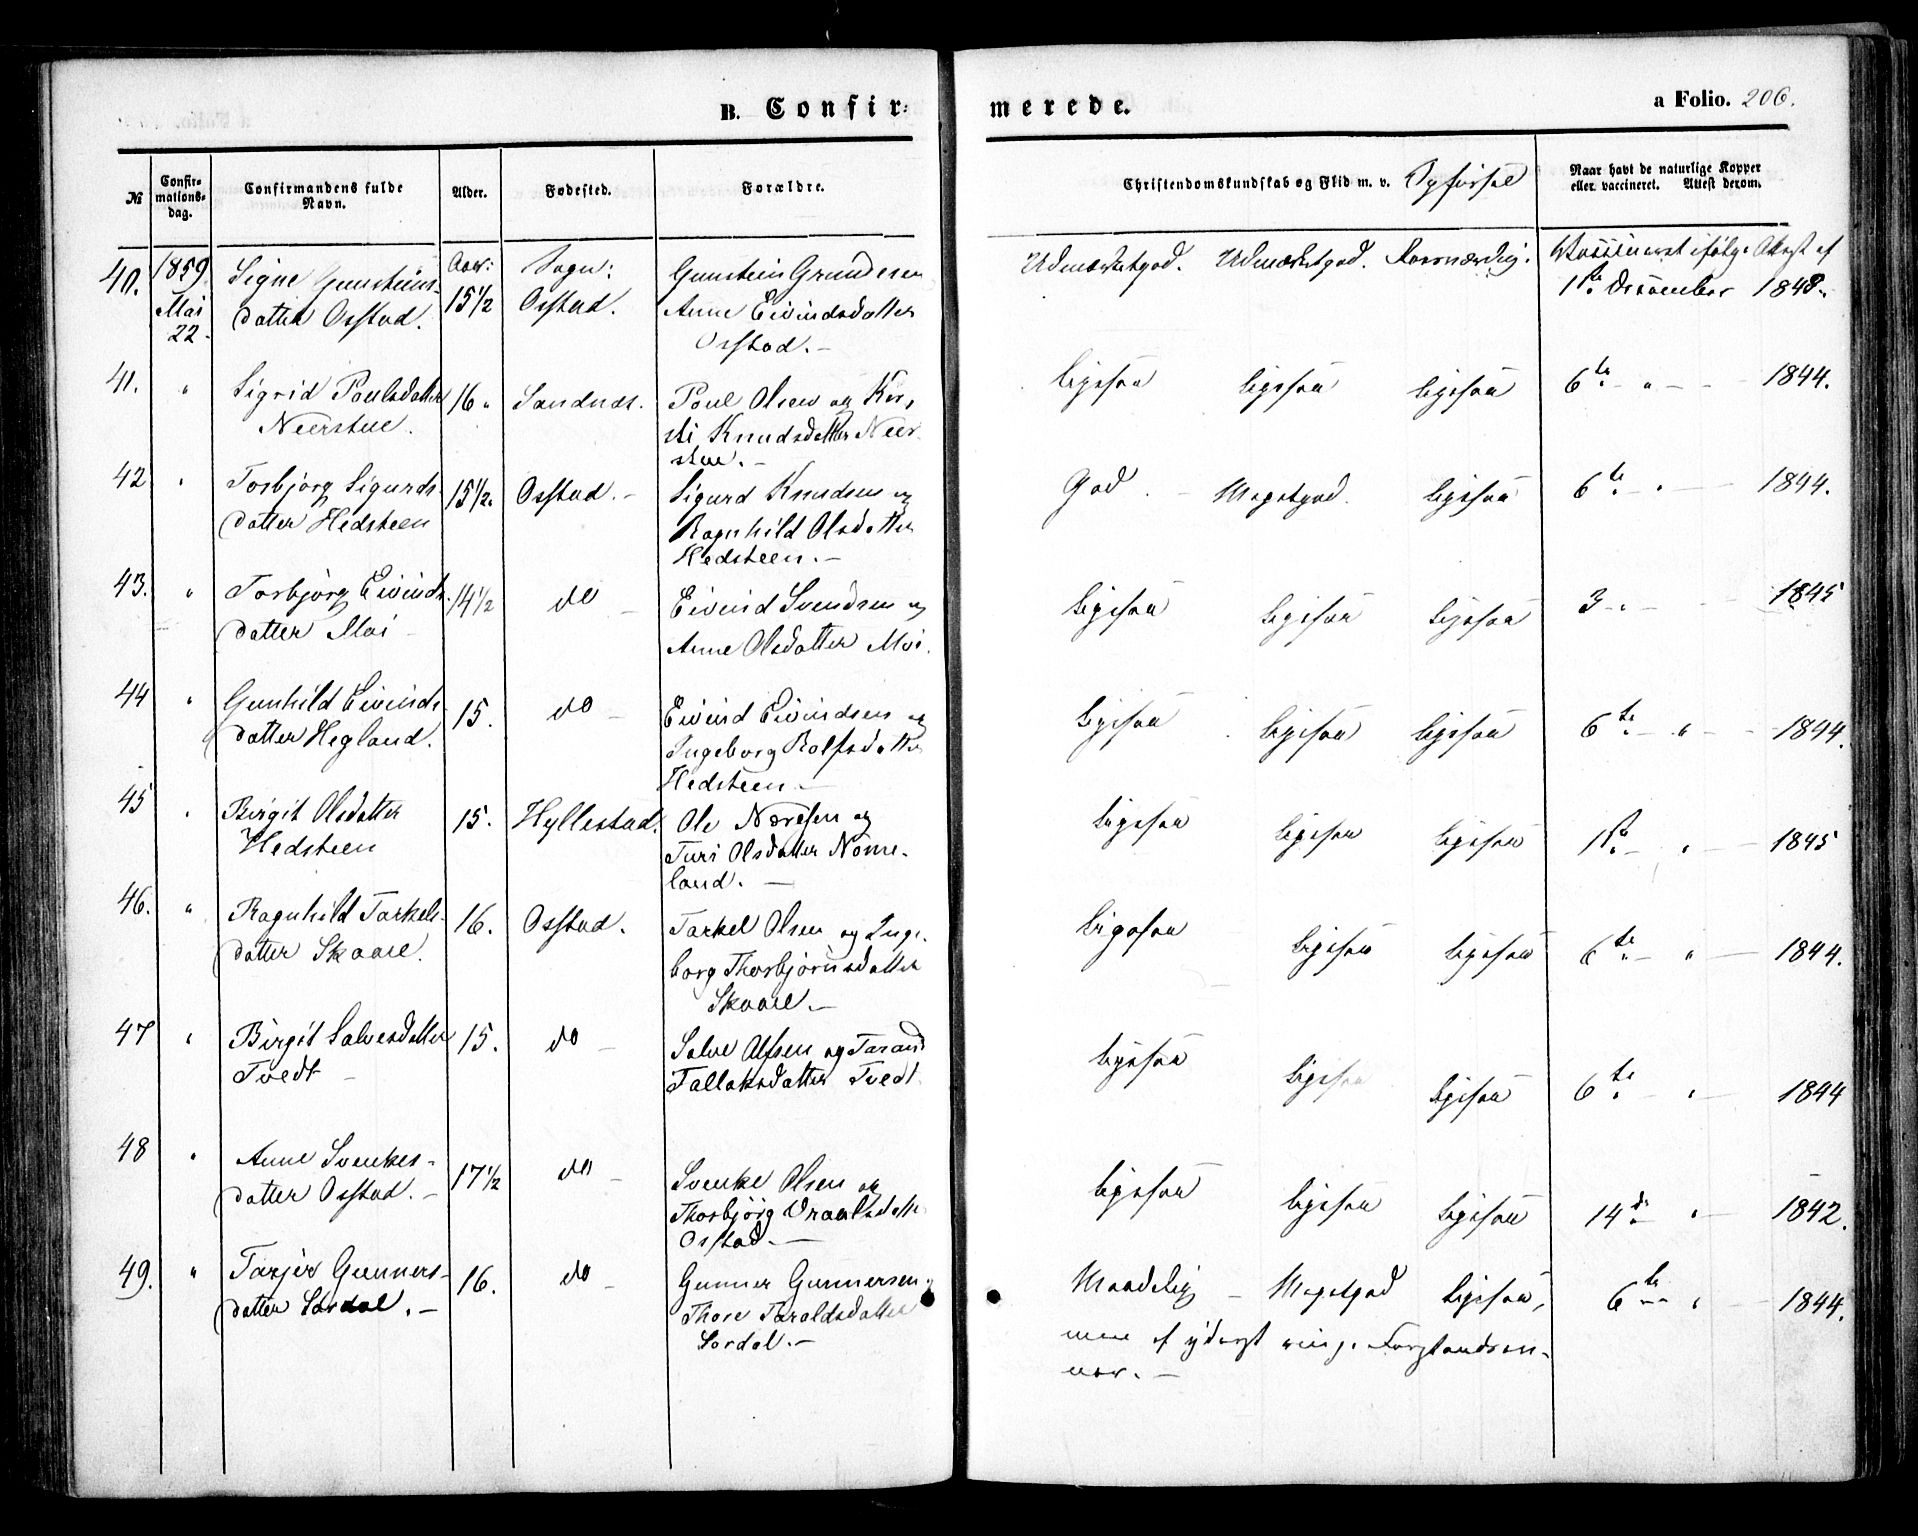 B. Confir=
merede.
a Folio. 206.
№
Confir=
mations=
dag.
Confirmandens fulde
Navn.
Alder.
Fødested.
Forældre.
Christendomskundskab og Flid m. v. Opførsel
Naar havt de naturlige Kopper
eller vaccineret. Attest derom.
40. 1859 Mai 22. Signe Gunsteins-
datter Osstad.
Aar: 15 1/2
Sogn: Osstad.
Gunstein Gundersen
Anne Eivindsdatter
Osstad.-
Udmærketgod. Udmærketgod. Roesværdig.
Vaccineret ifølge Attest af
1ste December 1848.
41. " Sigrid Poulsdatter
Neerstue.
16. Sandnæs.
Poul Olsen og Kir-
sti Knudsdatter Neer-
stue.-
ligesaa ligesaa ligesaa 6te - " - 1844.
42 " Torbjørg Sigurds-
datter Hedsteen
15 1/2. Osstad.-
Sigurd Knudsen og
Ragnhild Olsdatter
Hedsteen.-
God. - Megetgod. ligesaa 6te - " - 1844.
43. " Torbjørg Eivinds-
datter Moi
14 1/2 do -
Eivind Svendsen og
Anne Olsdatter Moi.
ligesaa ligesaa ligesaa 3 - " - 1845
44 " Gunhild Eivinds-
datter Hegland.
15. do -
Eivind Eivindsen og
Ingeborg Rolfsdatter
Hedsteen -
ligesaa ligesaa ligesaa 6te - " - 1844.
45 " Birgit Olsdatter
Hedsteen
15. Hyllestad.
Ole Næresen og
Turi Olsdatter Nome-
land. -
ligesaa ligesaa ligesaa 1ste - " - 1845
46. " Ragnhild Tarkels-
datter Skaare.
16. Osstad.
Tarkel Olsen og Inge-
borg Thorbjørnsdatter
Skaare.-
ligesaa ligesaa ligesaa 6te - " - 1844.
47 " Birgit Salvesdatter
Tvedt -
15. do -
Salve Alfsen og Tarand
Tallaksdatter Tvedt
ligesaa ligesaa ligesaa 6te - " - 1844
48 " Anne Svenkes-
datter Osstad.-
17 1/2 do -
Svenke Olsen og
Thorbjørg Vraalsdatter
Osstad.-
ligesaa ligesaa ligesaa 14de - " - 1842.
49. " Tarjer Gunners-
datter Sordal.-
16. do -
Gunner Gunnersen og
Thore Taraldsdatter
Sordal.-
Maadelig - Megetgod ligesaa, 6te - " - 1844.
men af yderst ringe Forstandsev-
ner.-